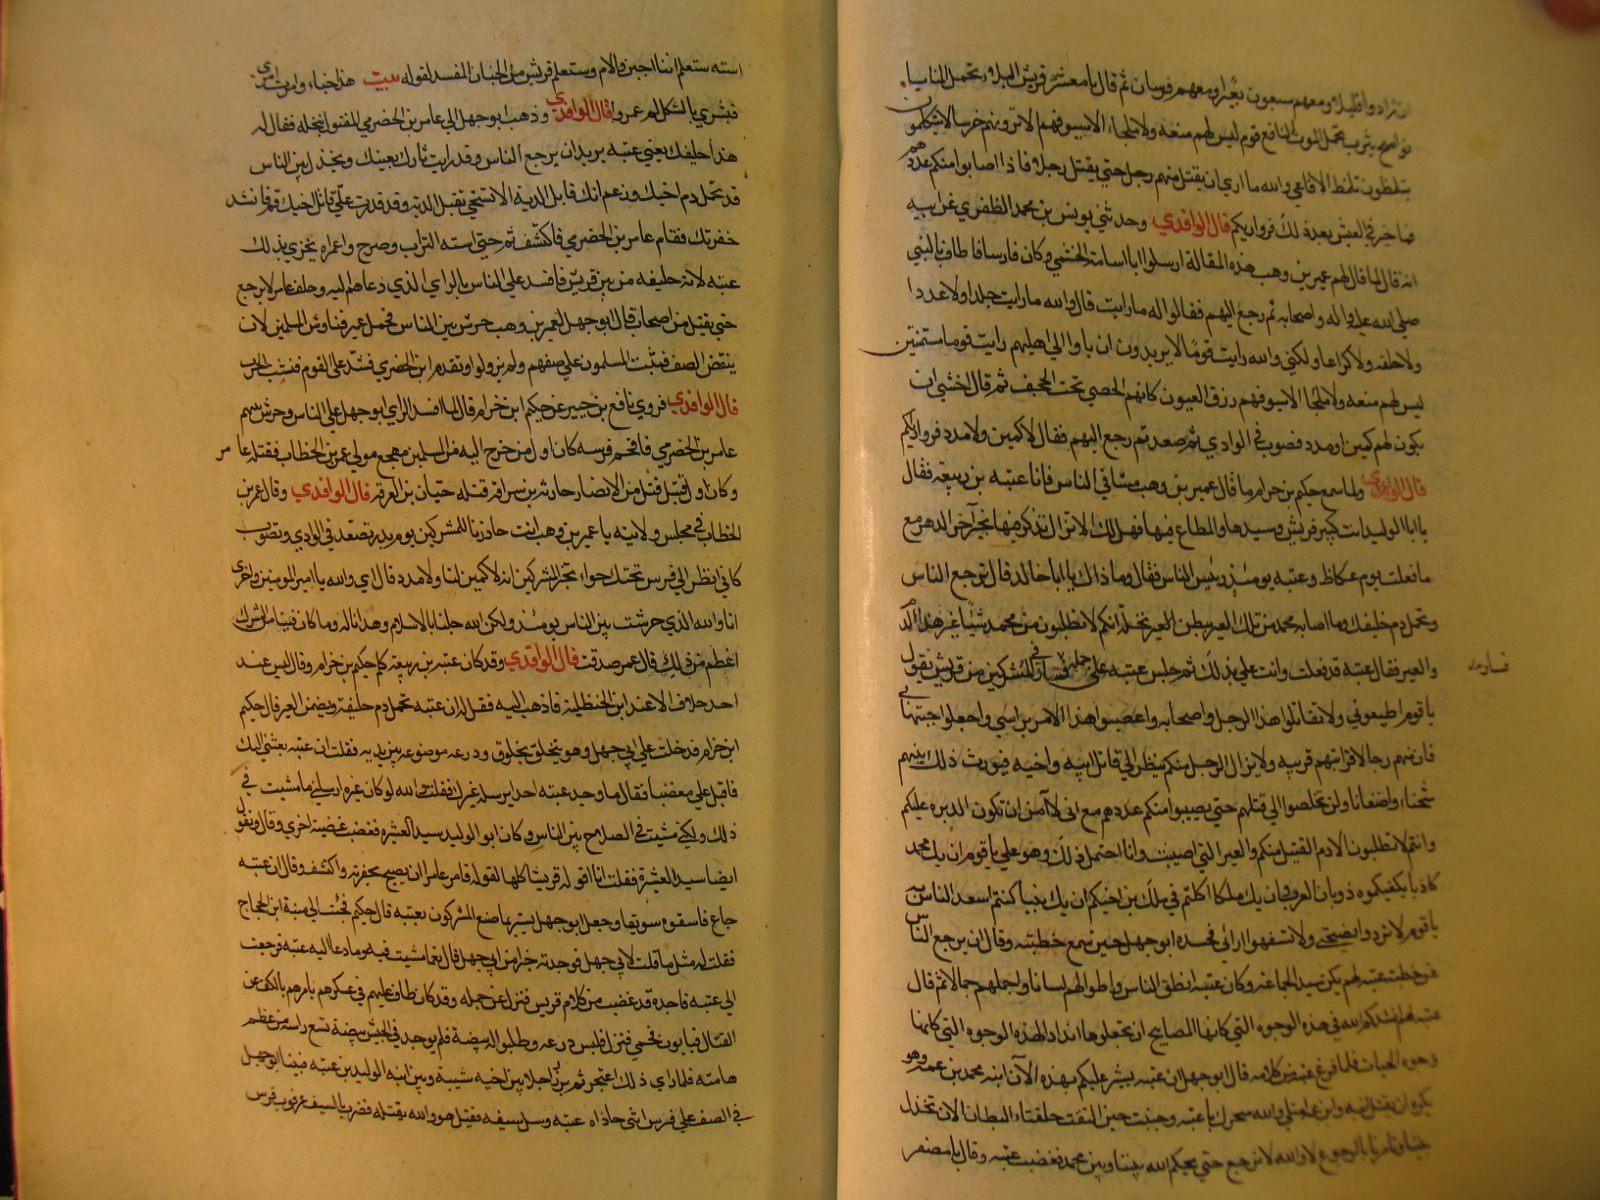 زاد واقليلا ومعهم سبعون بعيرا ومعهم فرسان ثم قال يا معشر قريش البلايا تحمل المنايا
نواضح يثرب تحمل الموت الناقع قوم ليس لهم منعة ولا ملجاء الا سيوفهم الا ترونهم خرسا لا يتكلمون
يتلمظون تلمظ الافاعي والله ما اري ان يقتل منهم رجل حتي يقتل رجلا فاذا اصابوا منكم عددهم
فما خير في العيش بعد ذلك فروا رايكم قال الواقدي وحدثني يونس بن محمد الظفري عن ابيه
انه قال لما قال لهم عمير بن وهب هذه المقالة ارسلوا ابا اسامة الخشمي وكان فارسا فاطاف بالنبي
صلي الله عليه واله واصحابه ثم رجع اليهم فقالوا له ما رايت قال والله ما رايت جلدا ولا عددا
ولا حلقه ولا كراعا ولكني والله رايت قوما لا يريدون ان ياوا الي اهليهم رايت قوما مستمتين
ليس لهم منعه ولا ملجا الا سيوفهم زرق العيون كانهم الحصي تحت الحجف ثم قال اخشي ان
يكون لهم كمين او مدد فصوب في الوادي ثم صعد ثم رجع اليهم فقال لا كمين ولا مدد فروا رايكم
قال الواقدي ولما سمع حكيم بن حزام ما قال عمير بن وهب مشا في الناس فاتا عتبه بن ربيعه فقال
يا ابا الوليد انت كبير قريش وسيدها والمطاع فيها فهل لك الا تزال تذكر منها بخير آخر الدهر مع
ما فعلت يوم عكاظ وعتبه يومئذ رئيس الناس فقال وما ذاك يا ابا خالد قال ترجع الناس
وتحمل دم حليفك وما اصابه محمد من تلك العير ببطن نخلة انكم لا تطلبون من محمد شيئا غير هذا الدم
والعير فقال عتبه قد فعلت وانت علي بذلك ثم جلس عتبه علي جمله فسار في المشركين من قريش يقول
يا قوم اطيعوني ولا تقاتلوا هذا الرجل واصحابه واعصبوا هذا الامر براسي واجعلوا جبنها بي
فان منهم رجالا قرابتهم قريبه ولا يزال الرجل منكم ينظر الي قاتل ابيه واخيه فيورث ذلك بينهم
شحناء واضغانا ولن تخلصوا الي قتلهم حتي يصيبوا منكم عددهم مع اني لا آمن ان تكون الدبره عليكم
وانتم لا تطلبون الا دم القتيل منكم والعير التي اصيبت وانا احتمل ذلك وهو علي يا قوم ان يك محمد
كاذبا يكفيكموه ذوبان العرب وان يك ملكا اكلتم في ملك بن اخيكم ان يك نبيا كنتم اسعد الناس به
يا قوم لا تردوا نصيحتي ولا تسفهوا رائي فحسده ابو جهل حين سمع خطبته وقال ان يرجع الناس
عن خطبة عتبه لهم يكن سيد الجماعه وكان عتبه انطق الناس واطولهم لسانا واجملهم جمالا ثم قال
عتبه لهم انشدكم الله في هذه الوجوه التي كانها المصابيح ان تجعلوها اندادا لهذه الوجوه التي كانها
وجوه الحيات فلما فرغ عتبه من كلامه قال ابو جهل ان عتبه يشير عليكم بهذا لان ابنه مع محمد بن عمه وهو
يكره ان يقتل ابنه وابن عمه امتلي والله سحرك يا عتبه وجبنت حين التقت حلقتاء البطان الان تخذل
بيننا وتامرنا بالرجوع لا والله لا نرجع حتي يحكم الله بيننا وبين محمد فغضب عتبه وقال يا مصفر
فساره
استه ستعلم اينا اجبن والام وستعلم قريش من الجبان المفسد لقومه بيت هذا حباء وامرت امري
فبشري بالثكل ام عمرو قال الواقدي وذهب ابو جهل الي عامر بن الحضرمي المقتول بنخله فقال له
هذا حليفك يعني عتبه يريد ان يرجع الناس وقد رايت ثارك بعينك ويخذل بين الناس
قد تحمل دم اخيك وزعم انك قابل الديه الا تستحي تقبل الديه وقد قدرت علي قاتل اخيك قم فانشد
خفرتك فقام عامر بن الحضرمي فاكشف ثم حتي استه التراب وصرخ واعمراه يخزي بذلك
عتبه لانه حليفه من بين قريش فافسد علي الناس بالراي الذي دعاهم اليه وحلف عامر لا يرجع
حتي يقتل من اصحاب قال ابو جهل لعمير بن وهب حرش بين الناس فحمل عمير فناوش المسلمين لان
ينقض الصف فثبت المسلمون علي صفهم ولم يزولوا وتقدم ابن الحضرمي فشد علي القوم فنشب الحرب
قال الواقدي فروي نافع بن جبير عن حكيم ابن خزام قال لما افسد الراي ابو جهل علي الناس وحرش بينهم
عامر بن الحضرمي فاقحم فرسه كان اول من خرج اليه من المسلمين مهجع مولي عمر بن الخطاب فقتله عامر
وكان اول قتيل قتل من الانصار حارثه بن سراقه قتله حيان بن العرقه قال الواقدي وقال عمر بن
الخطاب في مجلس ولايته يا عمير بن وهب انت حاذرنا للمشركين يوم بدر تصعد في الوادي وتصوب
كاني انظر الي فرس تحتك حواء تخبر المشركين انه لا كمين لنا ولا مدد قال اي والله يا امير المومنين واخري
انا والله الذي حرشت بين الناس يومئذ ولكن الله جانا بالاسلام وهدانا له وما كان فينا من الشرك
اعظم من ذلك قال عمر صدقت قال الواقدي وقد كان عتبه بن ربيعه كلم حكيم بن خزام وقال ليس عند
احد خلاف الا عند ابن الحنظلية فاذهب اليه فقل له ان عتبه تحمل دم حليفه ويضمن العير قال حكيم
ابن خزام فدخلت علي ابي جهل وهو يتخلق بخلوق ودرعه موضوعه بين يديه فقلت ان عتبه بعثني اليك
فاقبل علي مغضبا فقال ما وجد عتبه احد يرسله غيرك فقلت والله لو كان غيره ارسلني ما مشيت في
ذلك ولكني مشيت في الصلاح بين الناس وكان ابو الوليد سيد العشيره فغضب غضبة اخري وقال وتقول
ايضا سيد العشيرة فقلت انا اقوله قريشا كلها لقوله فامر عامرا ان يصيح بخفرته واكتشف وقال ان عتبه
جاع فاسقوه سويقا وجعل ابو جهل يسر بما صنع المشركون بعتبه قال حكيم فجئت الي منبه ابن الحجاج
فقلت له مثل ما قلت لابي جهل فوجدته خيرا من ابي جهل قال نعما مشيت فيه وما دعا اليه عتبه فرجعت
الي عتبه فاجده قد غضب من كلام قريش فنزل عن جمله وقد كان طاف عليهم في عسكرهم يامرهم بالكف عن
القتال فيابون فحمي فنزل فلبس درعه وطلبوا له بيضة فلم يوجد في الجيش بيضة تسع راسه من عظم
هامته فلما راي ذلك اعتجر ثم برز راجلا بين اخيه شيبة وبين ابنه الوليد بن عتبه فبينا ابو جهل
في الصف علي فرس انثي حاذاه عتبه وسل سيفه فقيل هو والله يقتله فضرب بالسيف عرقوب فرس